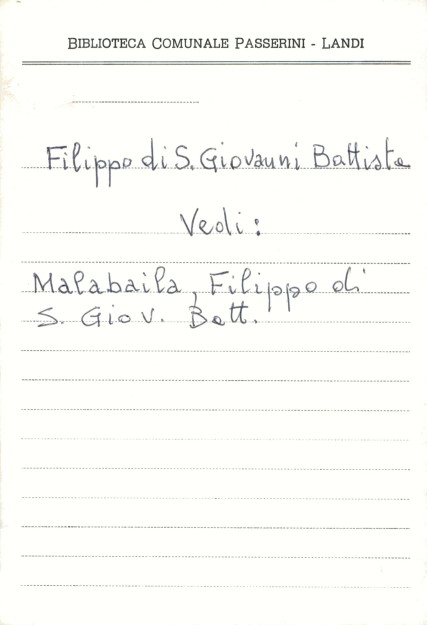 BIBLIOTECA COMUNALE PASSERINI - LANDI
Filippo di S. Giovanni Battista
Vedi:
Malabaila, Filippo di
S. Giov. Batt.